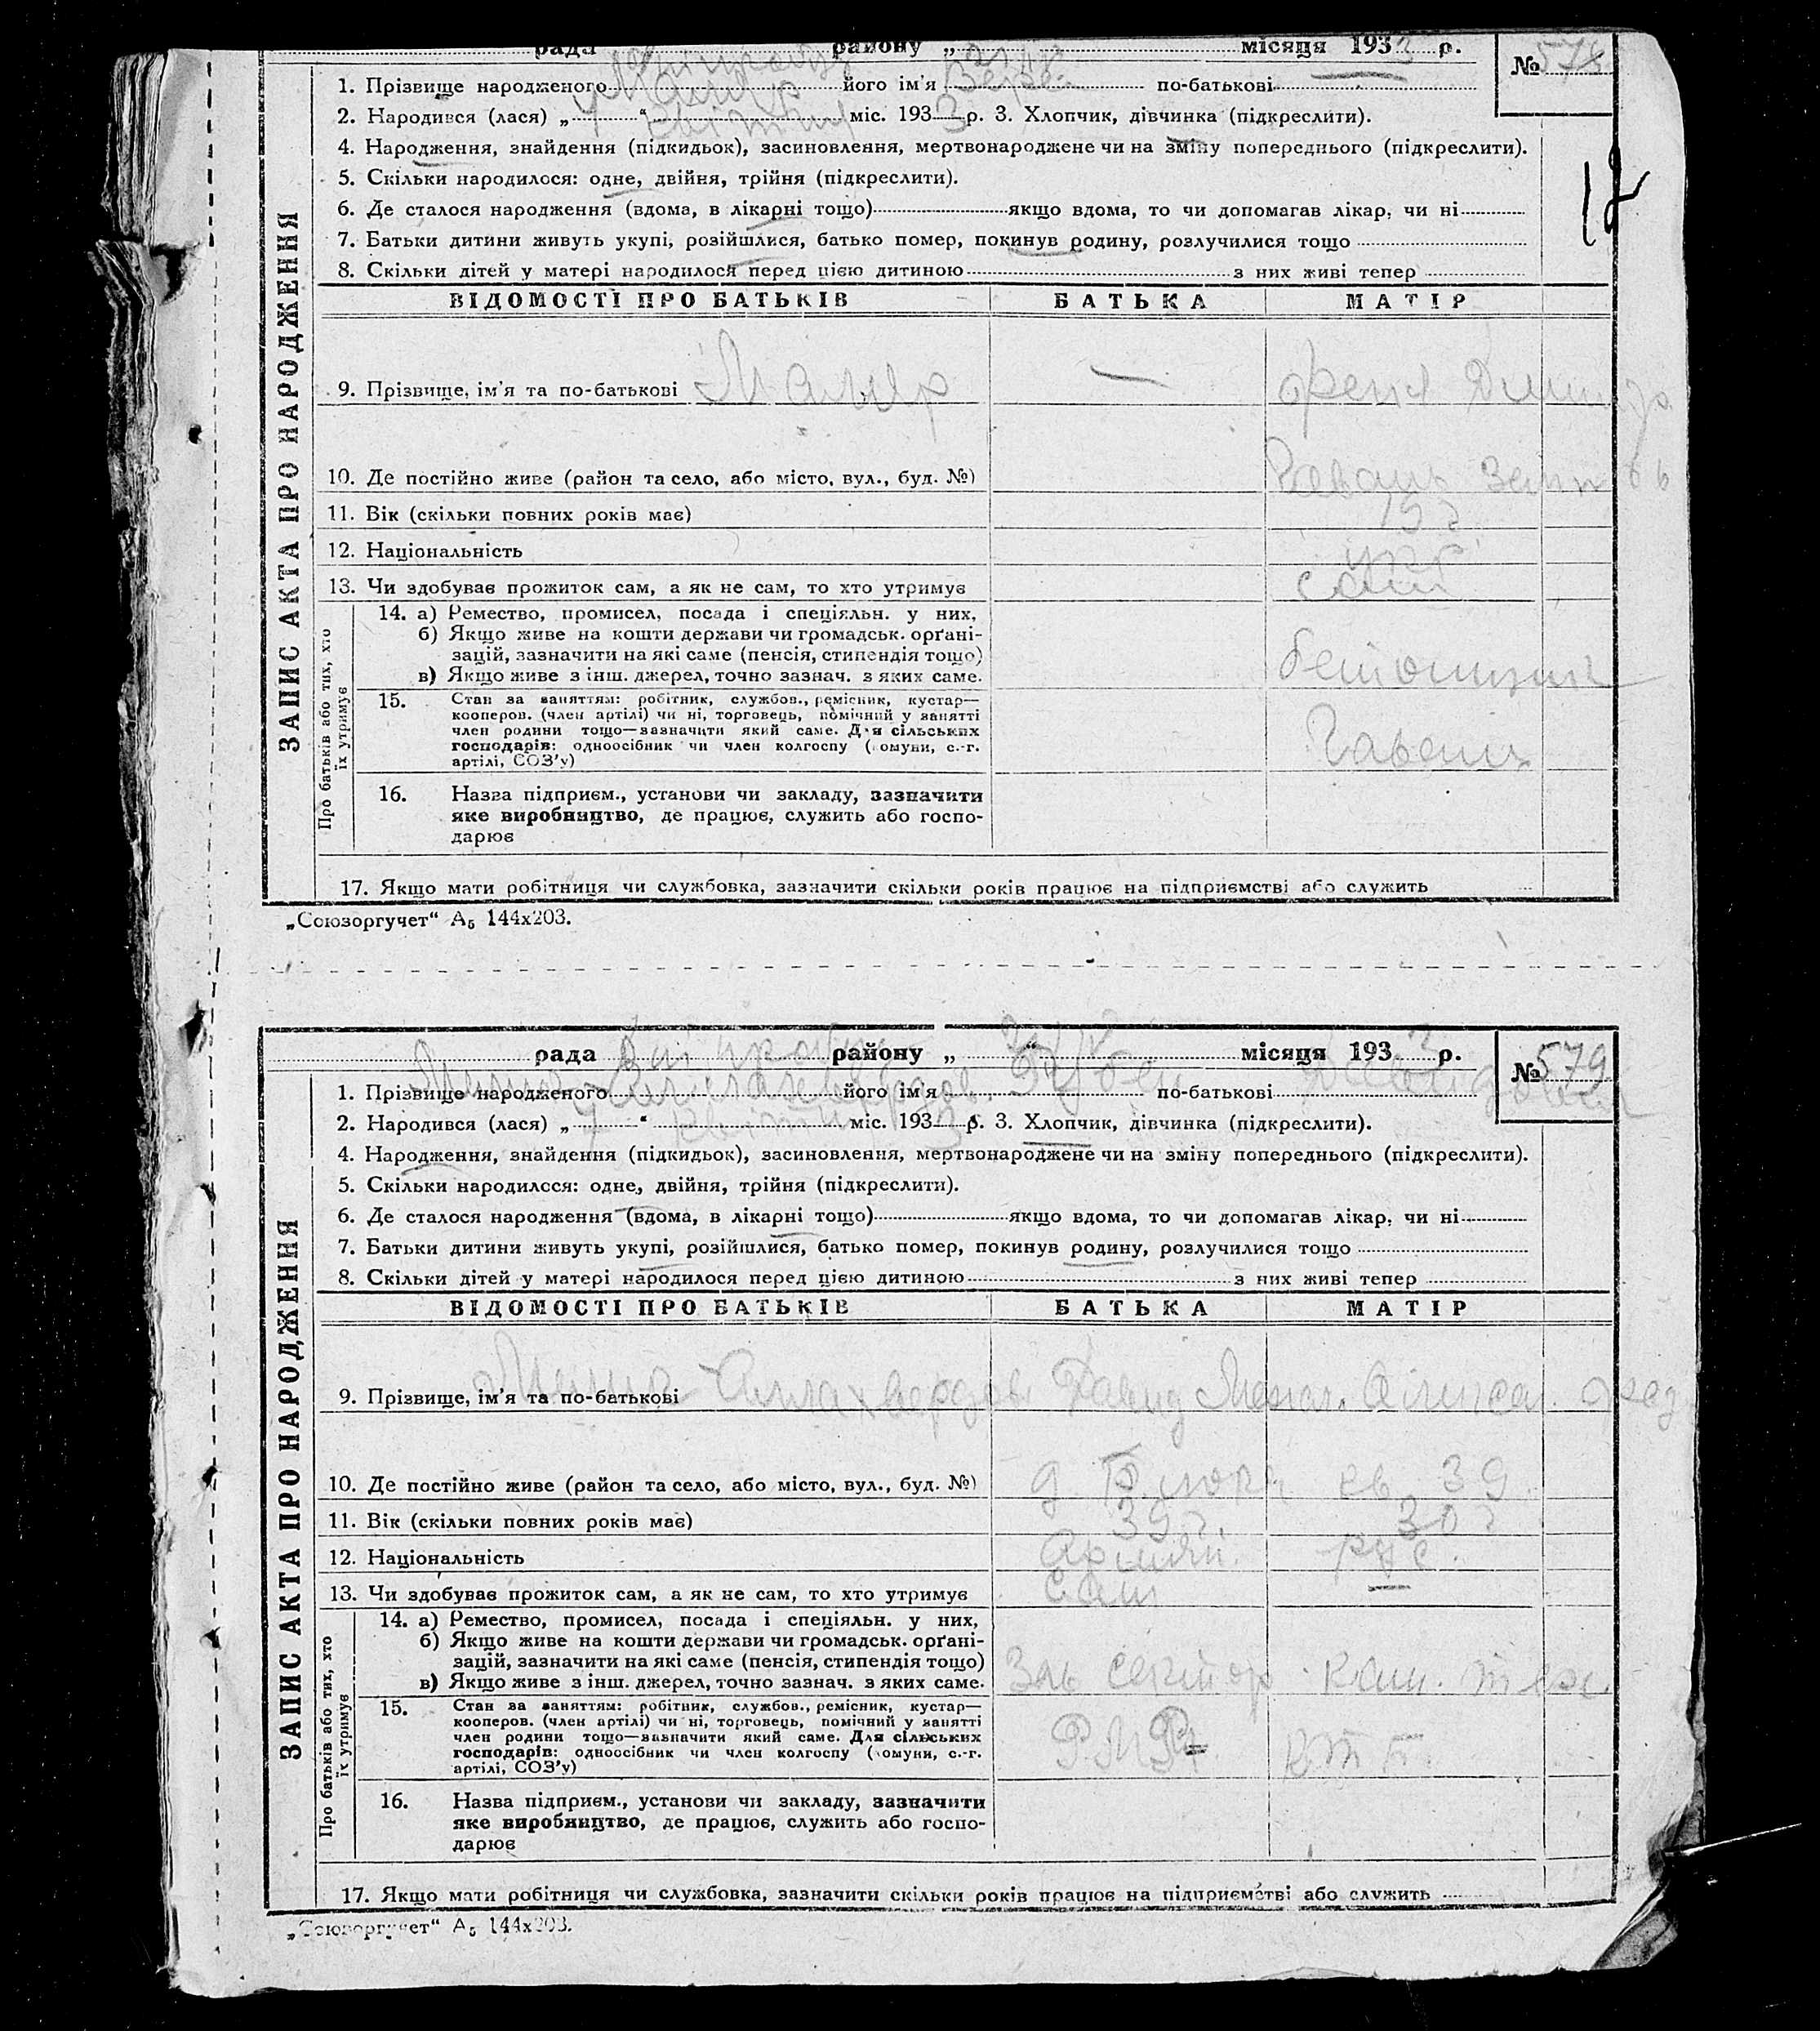 рада району „ місяця 1933 р.
№ 578
1. Прізвище народженого Маляр його ім'я по-батькові —
2. Народився (лася) „ 7 “ квітня міс. 1933 р. 3. Хлопчик, дівчинка (підкреслити).
4. Народження, знайдення (підкидьок), засиновлення, мертвонароджене чи на зміну попереднього (підкреслити).
5. Скільки народилося: одне, двійня, трійня (підкреслити).
6. Де сталося народження (вдома, в лікарні тощо) якщо вдома, то чи допомагав лікар, чи ні
7. Батьки дитини живуть укупі, розійшлися, батько помер, покинув родину, розлучилися тощо
8. Скільки дітей у матері народилося перед цією дитиною з них живі тепер
12
ЗАПИС АКТА ПРО НАРОДЖЕННЯ
ВІДОМОСТІ ПРО БАТЬКІВ БАТЬКА МАТІР
9. Прізвище, ім'я та по-батькові Маляр — Феня
10. Де постійно живе (район та село, або місто, вул., буд. №)
11. Вік (скільки повних років має) 19 г
12. Національність укр
13. Чи здобуває прожиток сам, а як не сам, то хто утримує сама
Про батьків або тих, хто їх утримує
14. а) Ремество, промисел, посада і спеціяльн. у них,
б) Якщо живе на кошти держави чи громадськ. орґані-
зацій, зазначити на які саме (пенсія, стипендія тощо)
в) Якщо живе з інш. джерел, точно зазнач. з яких саме.
15. Стан за заняттям: робітник, службов., ремісник, кустар—
кооперов. (член артілі) чи ні, торговець, помічний у занятті
член родини тощо—зазначити який саме. Для сільських
господарів: одноосібник чи член колгоспу (комуни, с.-г.
артілі, СОЗ'у)
16. Назва підприєм., установи чи закладу, зазначити
яке виробництво, де працює, служить або госпо-
дарює
17. Якщо мати робітниця чи службовка, зазначити скільки років працює на підприємстві або служить
„Союзоргучет“ А₅ 144х203.
рада району „ “ місяця 1933 р.
№ 579
1. Прізвище народженого його ім'я по-батькові
2. Народився (лася) „ 7 “ квітня міс. 1933 р. 3. Хлопчик, дівчинка (підкреслити).
4. Народження, знайдення (підкидьок), засиновлення, мертвонароджене чи на зміну попереднього (підкреслити).
5. Скільки народилося: одне, двійня, трійня (підкреслити).
6. Де сталося народження (вдома, в лікарні тощо) якщо вдома, то чи допомагав лікар, чи ні
7. Батьки дитини живуть укупі, розійшлися, батько помер, покинув родину, розлучилися тощо
8. Скільки дітей у матері народилося перед цією дитиною з них живі тепер
ЗАПИС АКТА ПРО НАРОДЖЕННЯ
ВІДОМОСТІ ПРО БАТЬКІВ БАТЬКА МАТІР
9. Прізвище, ім'я та по-батькові Аллахвердов Давид
10. Де постійно живе (район та село, або місто, вул., буд. №) кв 39
11. Вік (скільки повних років має) 39 г. 30 г
12. Національність армян. рус.
13. Чи здобуває прожиток сам, а як не сам, то хто утримує сам —
Про батьків або тих, хто їх утримує
14. а) Ремество, промисел, посада і спеціяльн. у них,
б) Якщо живе на кошти держави чи громадськ. орґані-
зацій, зазначити на які саме (пенсія, стипендія тощо)
в) Якщо живе з інш. джерел, точно зазнач. з яких саме.
15. Стан за заняттям: робітник, службов., ремісник, кустар—
кооперов. (член артілі) чи ні, торговець, помічний у занятті
член родини тощо—зазначити який саме. Для сільських
господарів: одноосібник чи член колгоспу (комуни, с.-г.
артілі, СОЗ'у)
16. Назва підприєм., установи чи закладу, зазначити
яке виробництво, де працює, служить або госпо-
дарює
17. Якщо мати робітниця чи службовка, зазначити скільки років працює на підприємстві або служить
„Союзоргучет“ А₅ 144х203.